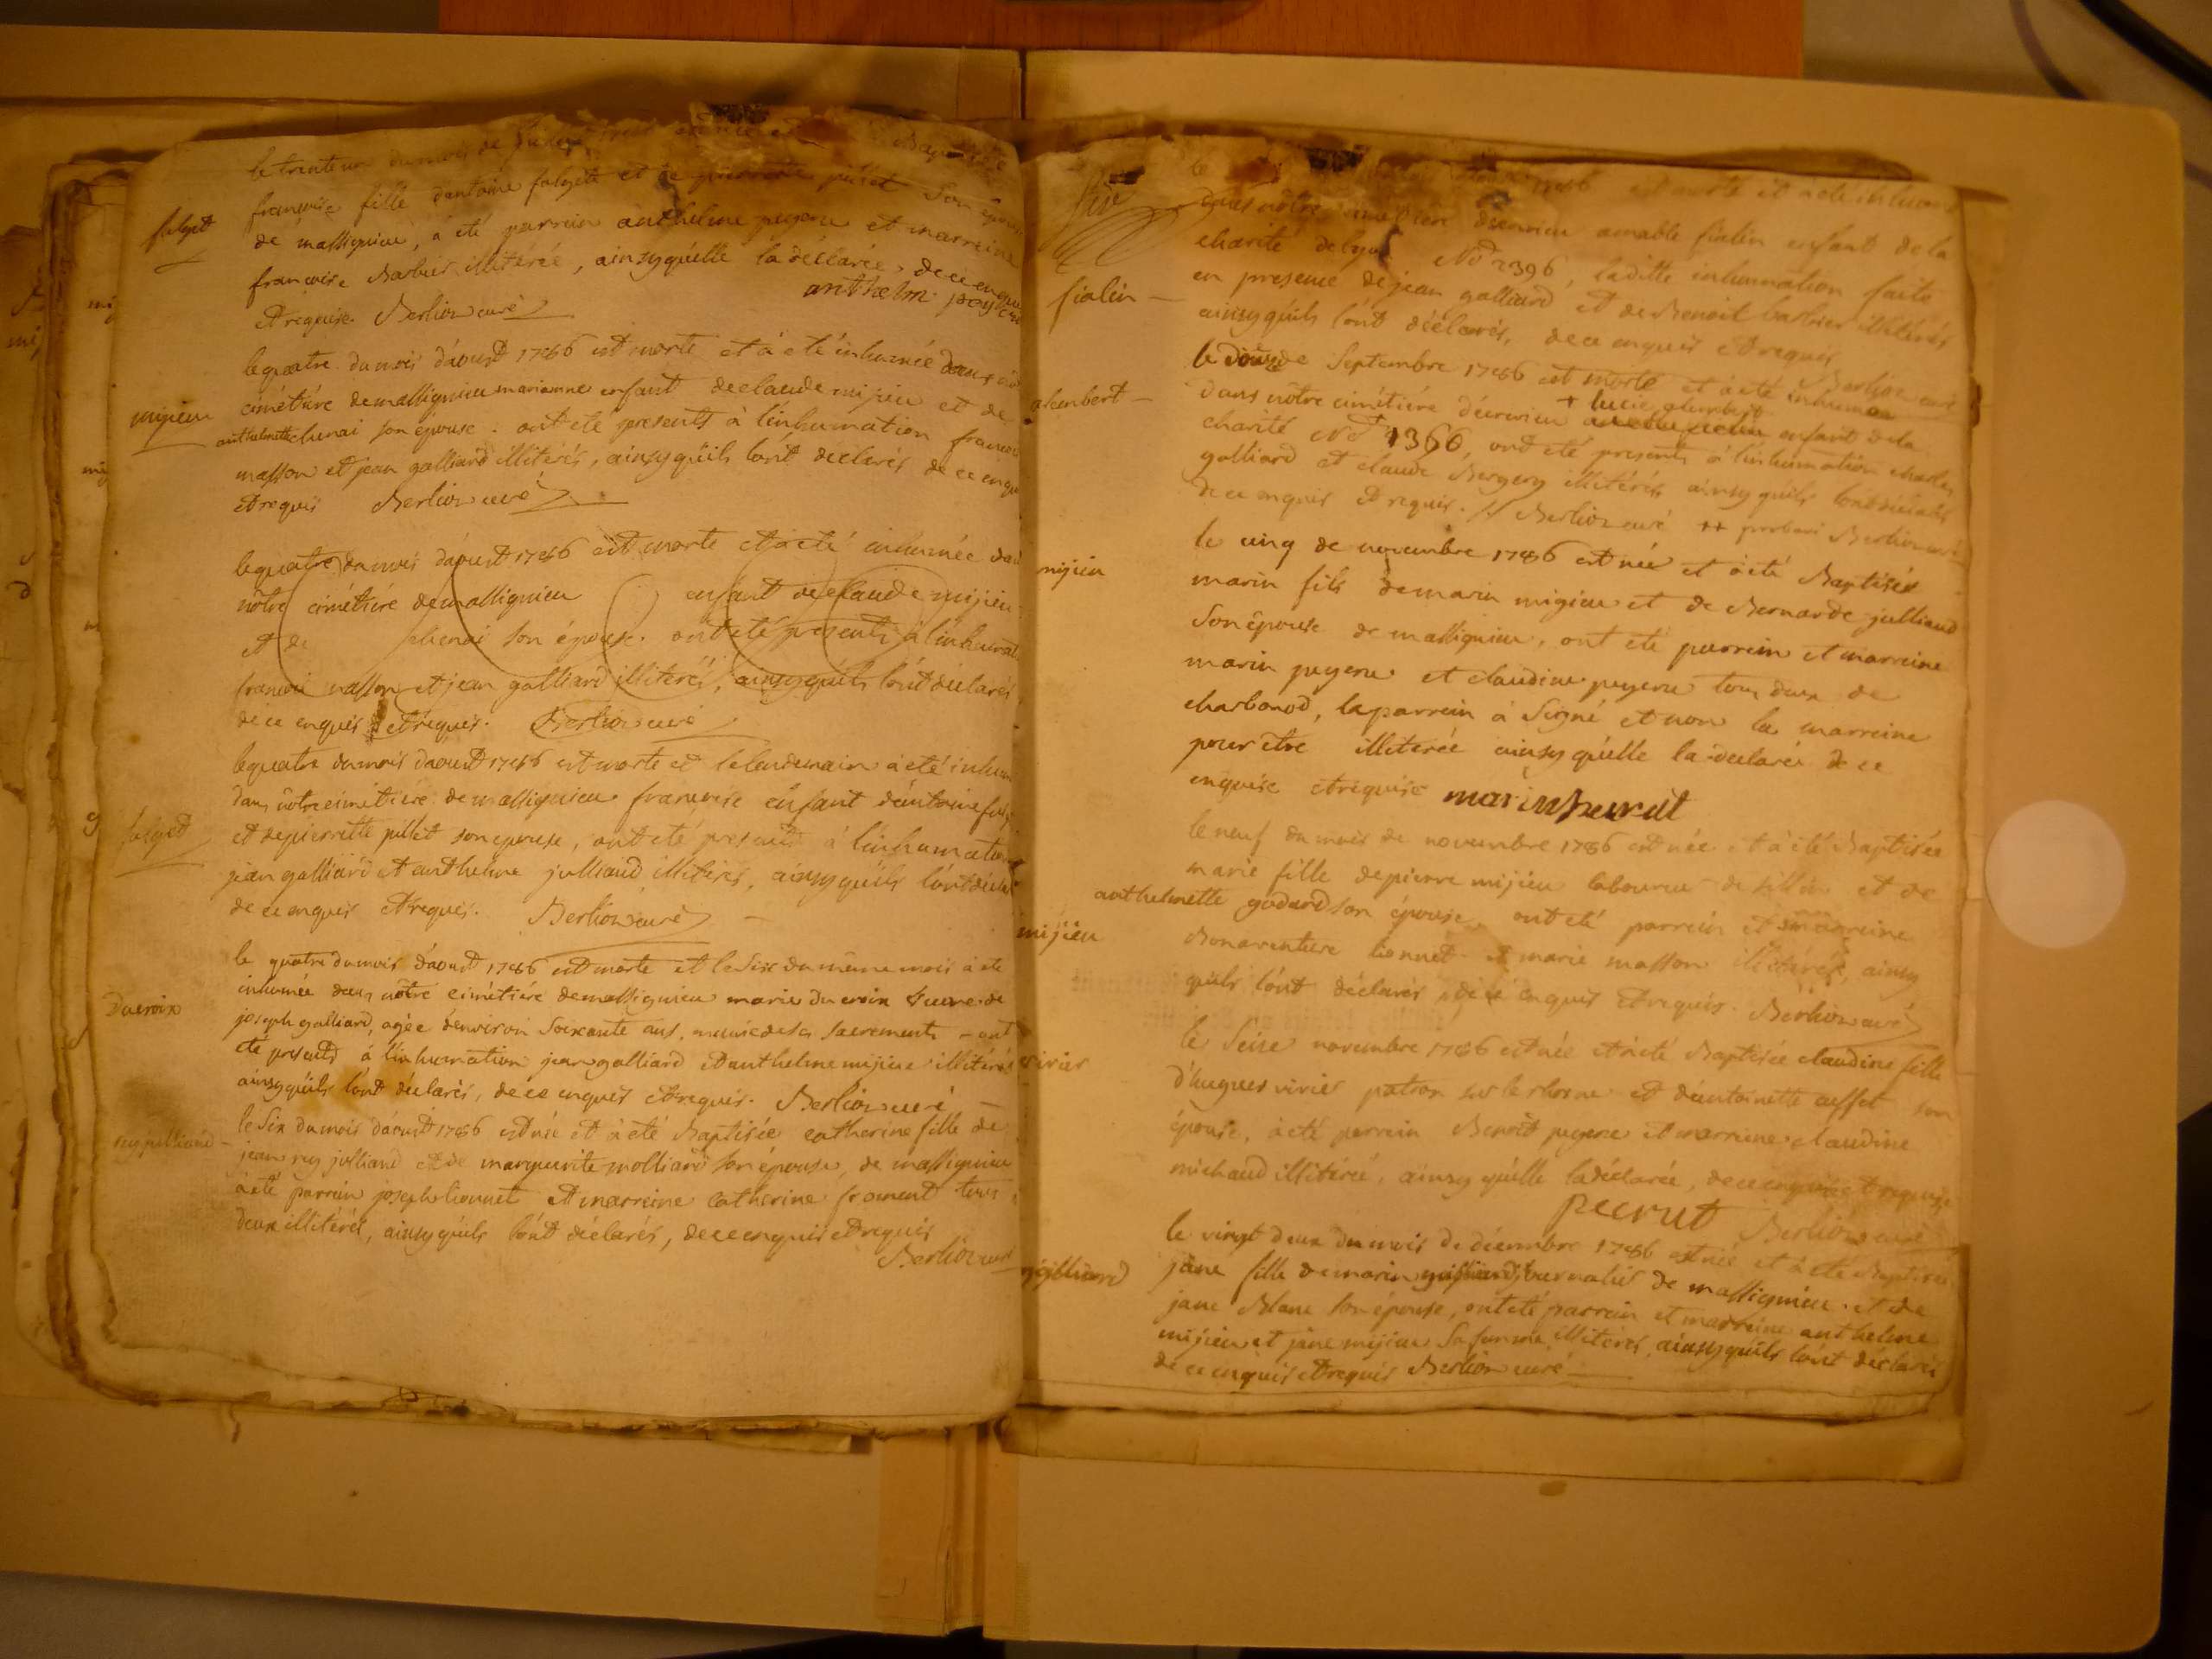 le trente un du mois de
françoise fille d'antoine falget et de pierrette pillet son épouse
falget
de massignieu, à été parrein anthelme peyeru et marreine
françoise Barbier illitérée, ainsy qu'elle la déclarée, de ce enquise
anthelm
Et requise. Berlioz curé
le quatre du mois d'aoust 1786 est morte et à été inhumée dans
mijieu
cimétiére de massignieu marianne enfant de claude mijieu et de
anthelmette chenai son épouse. ont été presents à l'inhumation francois
masson et jean galliard illitérés, ainsy qu'ils lont déclarés de ce enquis
Et requis Berlioz curé
le quatre du mois d'aoust 1786 est morte et à été inhumée dans
nôtre cimétiére de massignieu enfant de claude mijieu
et de chenai son épouse. ont été presents à l'inhumation
francois masson et jean galliard illitérés, ainsy qu'ils lont déclarés
de ce enquis Et requis. Berlioz curé
le quatre du mois d'aoust 1786 est morte et le lendemain à été inhumée
dans nôtre cimétiere de massignieu francoise enfant d'antoine falget
falget
et de pierrette pillet son epouse, ont été presents à l'inhumation
jean galliard et anthelme julliand illitérés, ainsy qu'ils lont déclarés
de ce enquis Et requis. Berlioz curé
le quatre du mois d'aoust 1786 est morte et le six du même mois à été
inhumée dans nôtre cimétiére de massignieu marie ducroix veuve de
Ducroix
joseph galliard, agée d'environ soixante ans, munie de ses sacrements - ont
été presents à l'inhumation jean galliard et anthelme mijieu illitérés
ainsy qu'ils lont déclarés, de ce enquis Et requis. Berlioz curé
le six du mois d'aoust 1786 est née et à été Baptisée catherine fille de
rey julliand
jean rey julliand et de marguerite molliard son épouse, de massignieu
à été parrein joseph lionnet et marreine catherine froment tous
deux illitérés, ainsy qu'ils lont déclarés, de ce enquis et requis
Berlioz curé
le 1786 est morte et à été inhumée
dans nôtre cimétiére d'ecrivieu aimable fialin enfant de la
charité de lyon No 2396, laditte inhumation faite
fialin
en presence de jean galliard et de Benoit barbier illitérés
ainsy qu'ils lont déclarés, de ce enquis et requis
Berlioz curé
le douze de septembre 1786 est morte et à été inhumée
dans nôtre cimétiére d'ecrivieu + lucie enfant de la
charité No 1366, ont été presents à l'inhumation charles
galliard et claude Bergery illitérés ainsy qu'ils lont déclarés
de ce enquis Et requis. // Berlioz curé ++ Berlioz curé
le cinq de novembre 1786 est née et à été Baptisée
mijieu
marin fils de marin migieu et de Bernarde julliand
son épouse de massignieu, ont été parrein et marreine
marin peyeru et claudine peyeru tous deux de
charbonod, la parrein à signé et non la marreine
pour être illiterée ainsy qu'elle la déclarée de ce
enquise et requise
le neuf du mois de novembre 1786 est née et à été Baptisée
marie fille de pierre mijieu laboureur de sillin et de
anthelmette godard son épouse, ont été parrein et marreine
mijieu
Bonaventure lionnet et marie masson illitérés, ainsy
qu'ils lont déclarés de ce enquis Et requis. Berlioz curé
le seise novembre 1786 est née et à été Baptisée claudine fille
vivier
d'hugues vivier patron sur le rhosne et d'antoinette cusset son
épouse, à été parrein Benoit peyeru et marreine claudine
michaud illitérée, ainsy qu'elle la déclarée, de ce enquise et requise
Berlioz curé
le vingt deux du mois de décembre 1786 est née et à été Baptisée
jane fille de marin journalier de massignieu et de
jane Blanc son épouse, ont été parrein et marreine anthelme
mijieu et jane mijieu sa femme illiterés, ainsy qu'ils lont déclarés
de ce enquis Et requis Berlioz curé